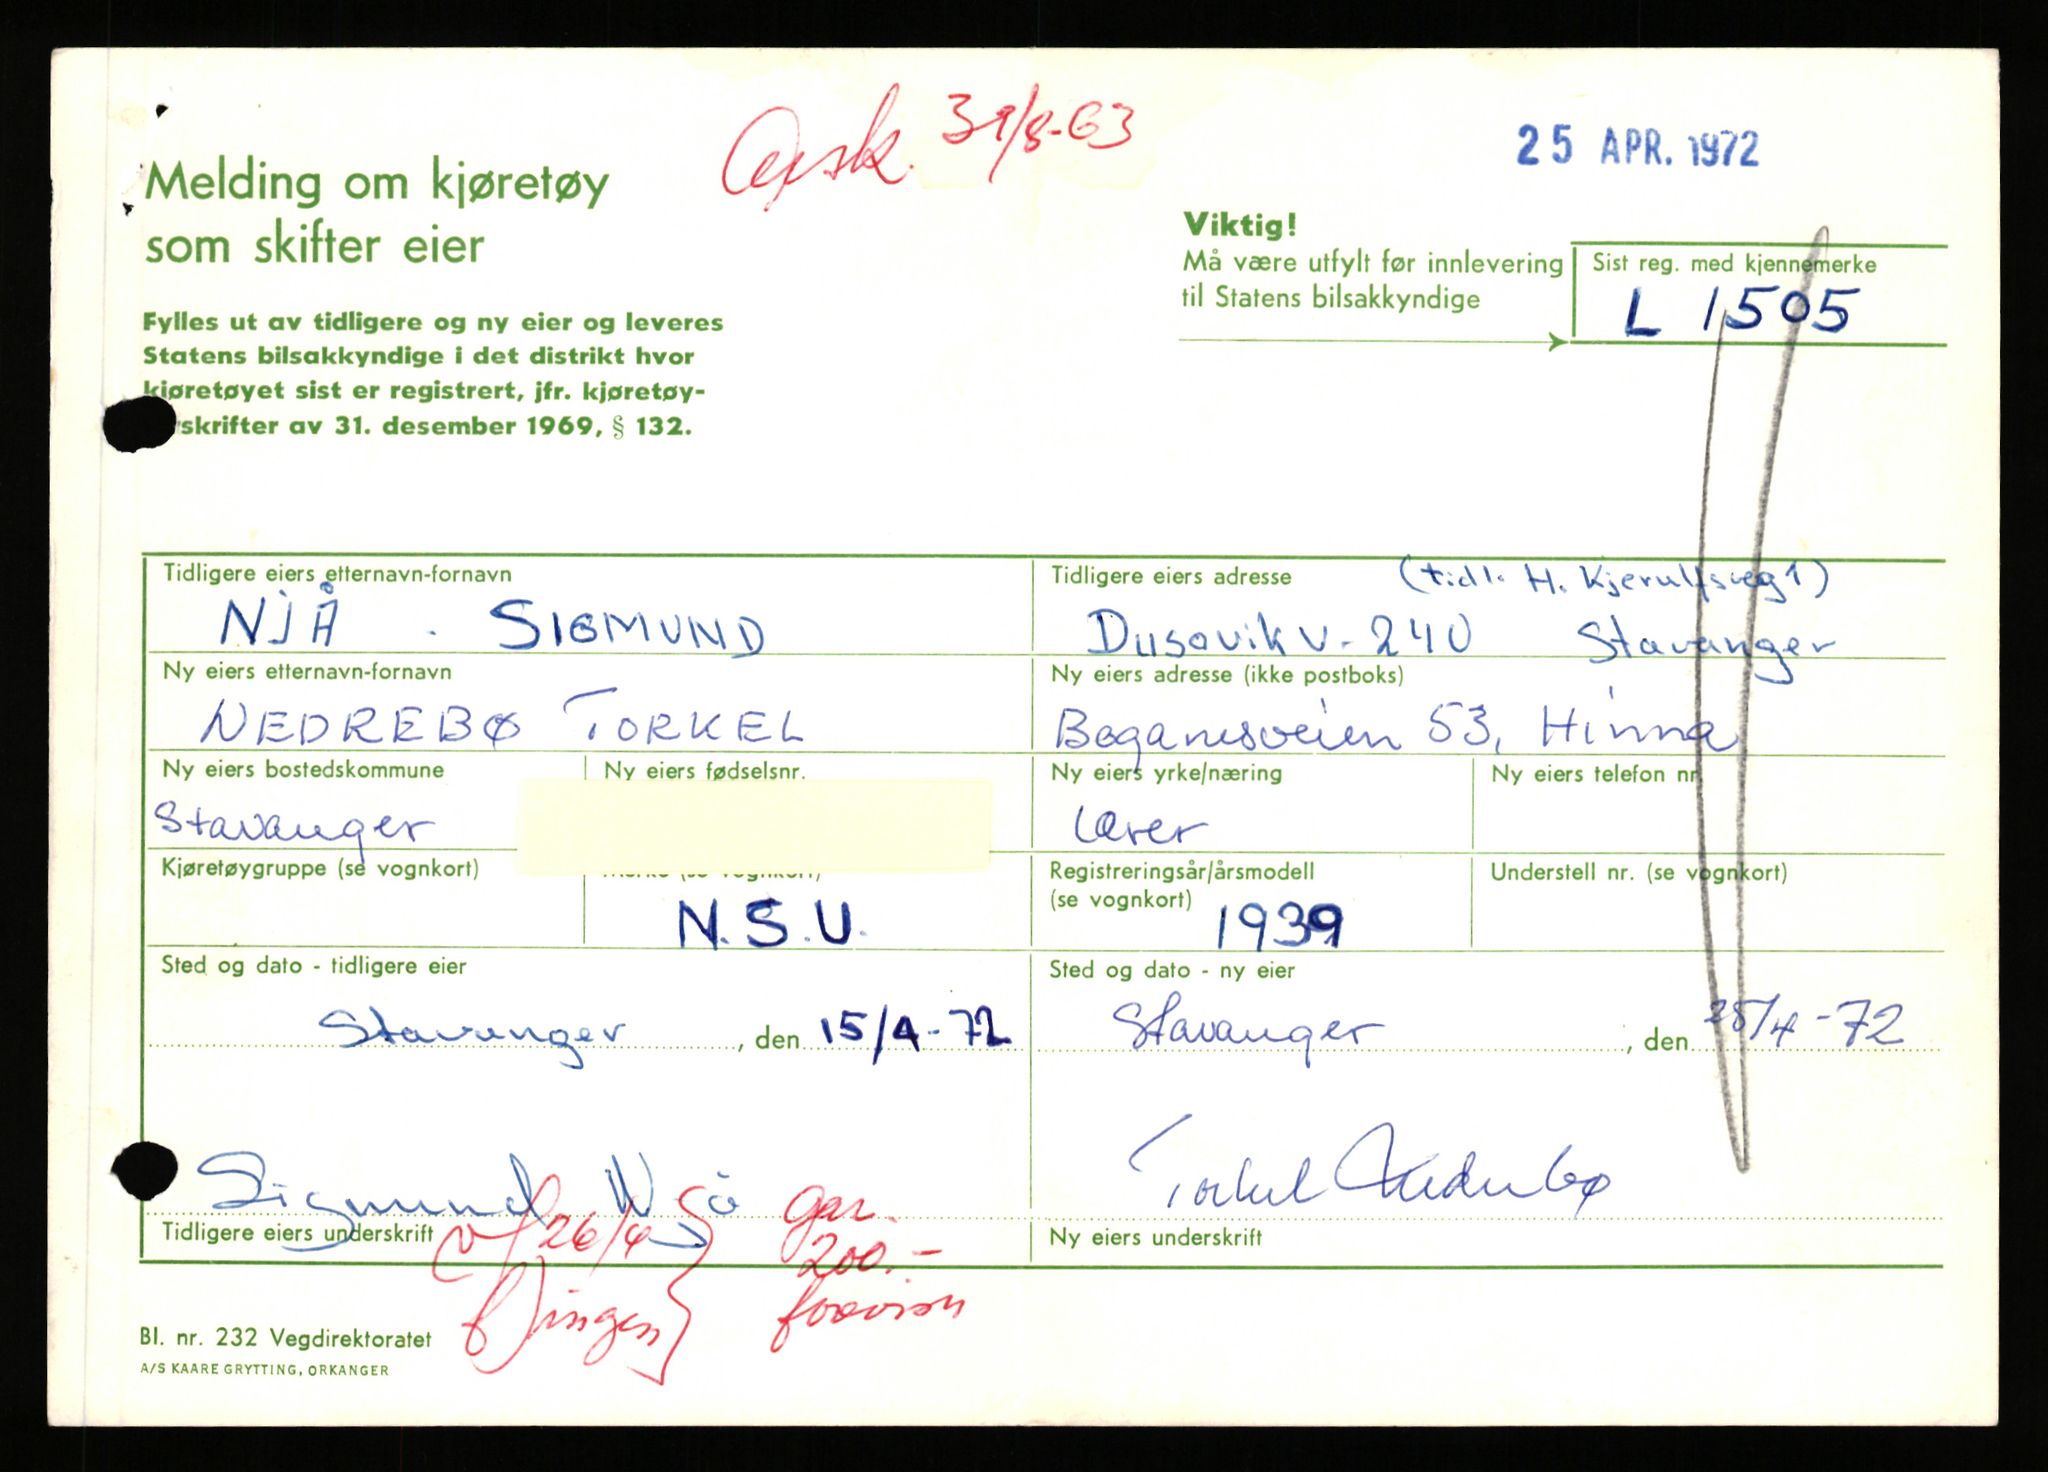 Avsk. 31/8-63
25 APR. 1972
Melding om kjøretøy
som skifter eier
Viktig!
Må være utfylt før innlevering
til Statens bilsakkyndige
Sist reg. med kjennemerke
L 1505
Fylles ut av tidligere og ny eier og leveres
Statens bilsakkyndige i det distrikt hvor
kjøretøyet sist er registrert, jfr. kjøretøy-
skrifter av 31. desember 1969, § 132.
Tidligere eiers etternavn-fornavn
NJÅ . SIGMUND
Tidligere eiers adresse
(tidl. H. Kjerulfsveg 1)
Dusavikv. 240 Stavanger
Ny eiers etternavn-fornavn
NEDREBØ TORKEL
Ny eiers adresse (ikke postboks)
Boganesveien 53, Hinna
Ny eiers bostedskommune
Stavanger
Ny eiers fødselsnr.
Ny eiers yrke/næring
Lærer
Ny eiers telefon nr.
Kjøretøygruppe (se vognkort)
Merke (se vognkort)
N.S.U.
Registreringsår/årsmodell
(se vognkort)
1939
Understell nr. (se vognkort)
Sted og dato - tidligere eier
Stavanger, den 15/4-72
Sted og dato - ny eier
Stavanger, den 25/4-72
Sigmund Njå
Tidligere eiers underskrift
Torkel Nedrebø
Ny eiers underskrift
26/4
ingen
gar.
200.-
Bl. nr. 232 Vegdirektoratet
A/S KAARE GRYTTING, ORKANGER